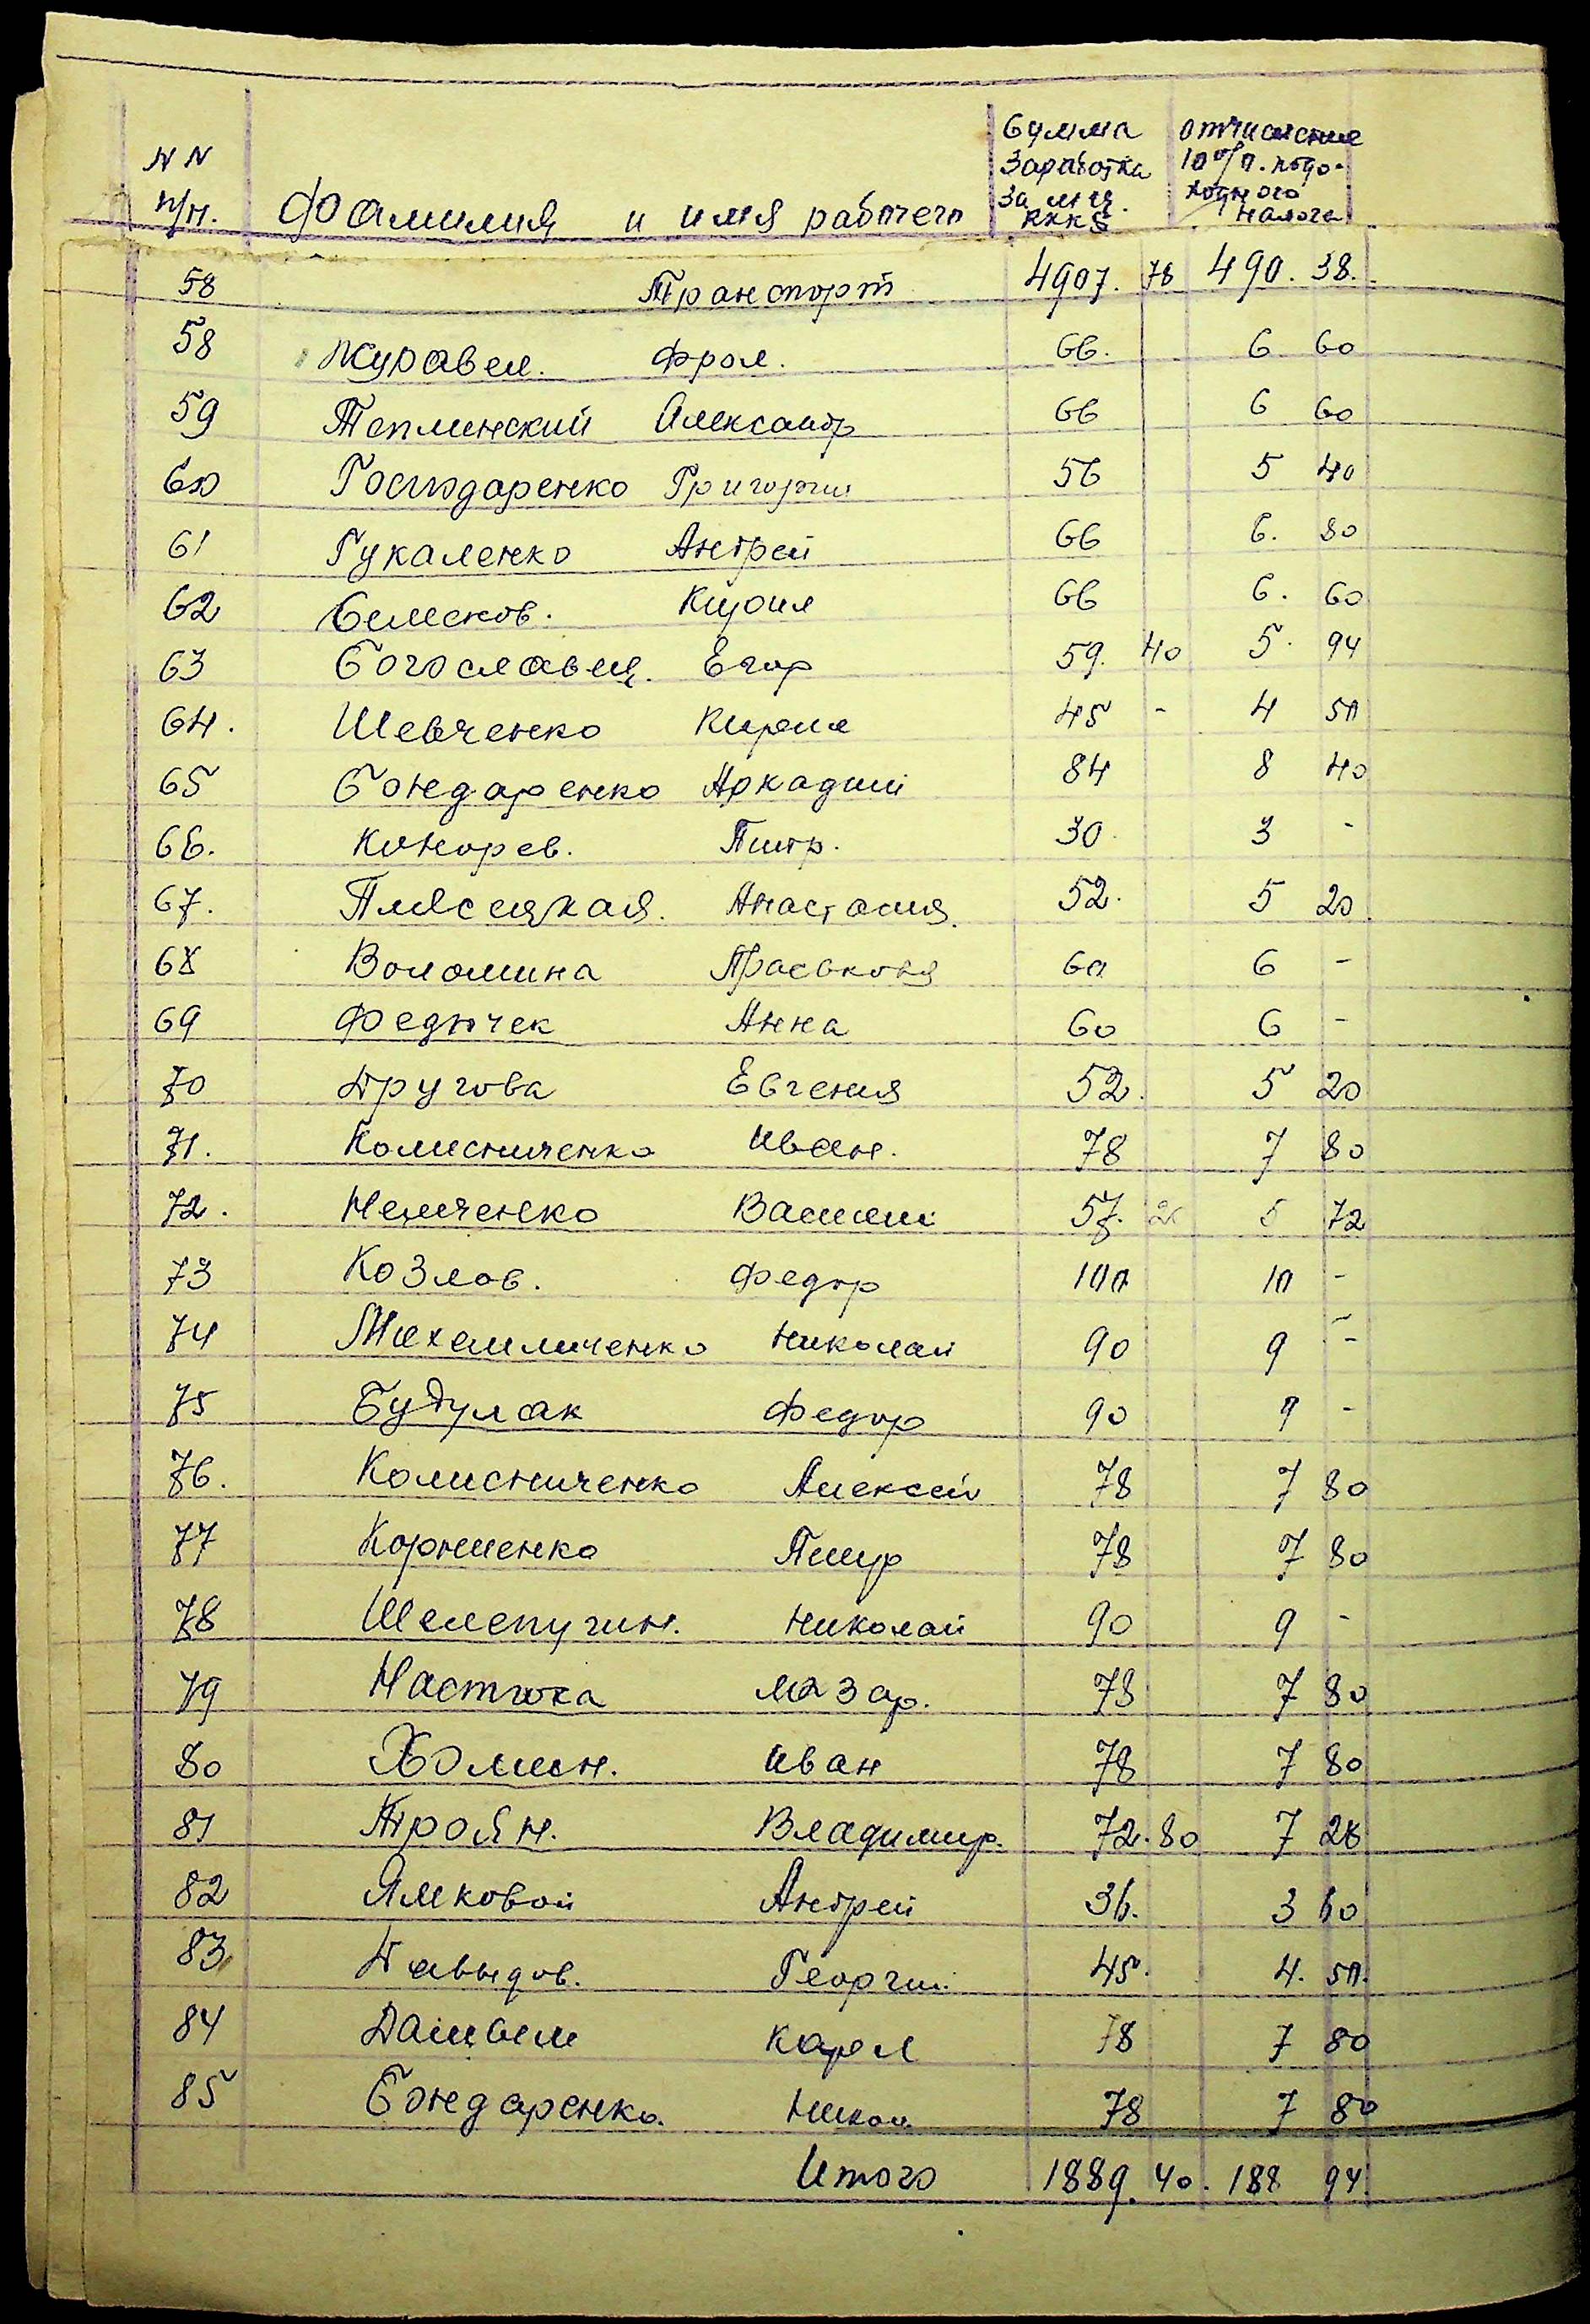 NN п/п. Фоамилия и имя рабочего Сумма заработка за м-ц. RKKS отчисление 10% п. подоходного налога
58 Транспорт 4907. 78 490. 38.
58 Журавел. Фрол. 66. 6 60
59 Теплинский Александр 66 6 60
60 Господаренко Григорий 56 5 40
61 Гукаленко Андрей 66 6. 80
62 Семенов. Кирил 66 6. 60
63 Богославец. Егор 59. 40 5. 94
64. Шевченко Кирил 45 - 4 50
65 Бондаренко Аркадий 84 8 40
66. Конорев. Питр. 30. 3 -
67. Плясецкая. Анастасия. 52. 5 20.
68 Воломина Прасковя 60 6 -
69 Федючек Анна 60 6 -
70 Другова Евгения 52. 5 20
71. Колисниченко Иван. 78 7 80
72. Немченко Василий 57. 20 5 72
73 Козлов. Федор 100 10 -
74 Михайличенко Николай 90 9 -
75 Будулак Федор 90 9 -
76. Колисниченко Алексей 78 7 80
77 Корниенко Питр 78 7 80
78 Шелепугин. Николай 90 9 -
79 Настюка Лазар. 78 7 80
80 Хомин. Иван 78 7 80
81 Троян. Владимир. 72. 80 7 28
82 Ямковой Андрей 36. 3 60
83 Давыдов. Георгий. 45. 4. 50.
84 Карел 78 7 80
85 Бондаренко. Никол. 78 7 80
Итого 1889. 40. 188 94.